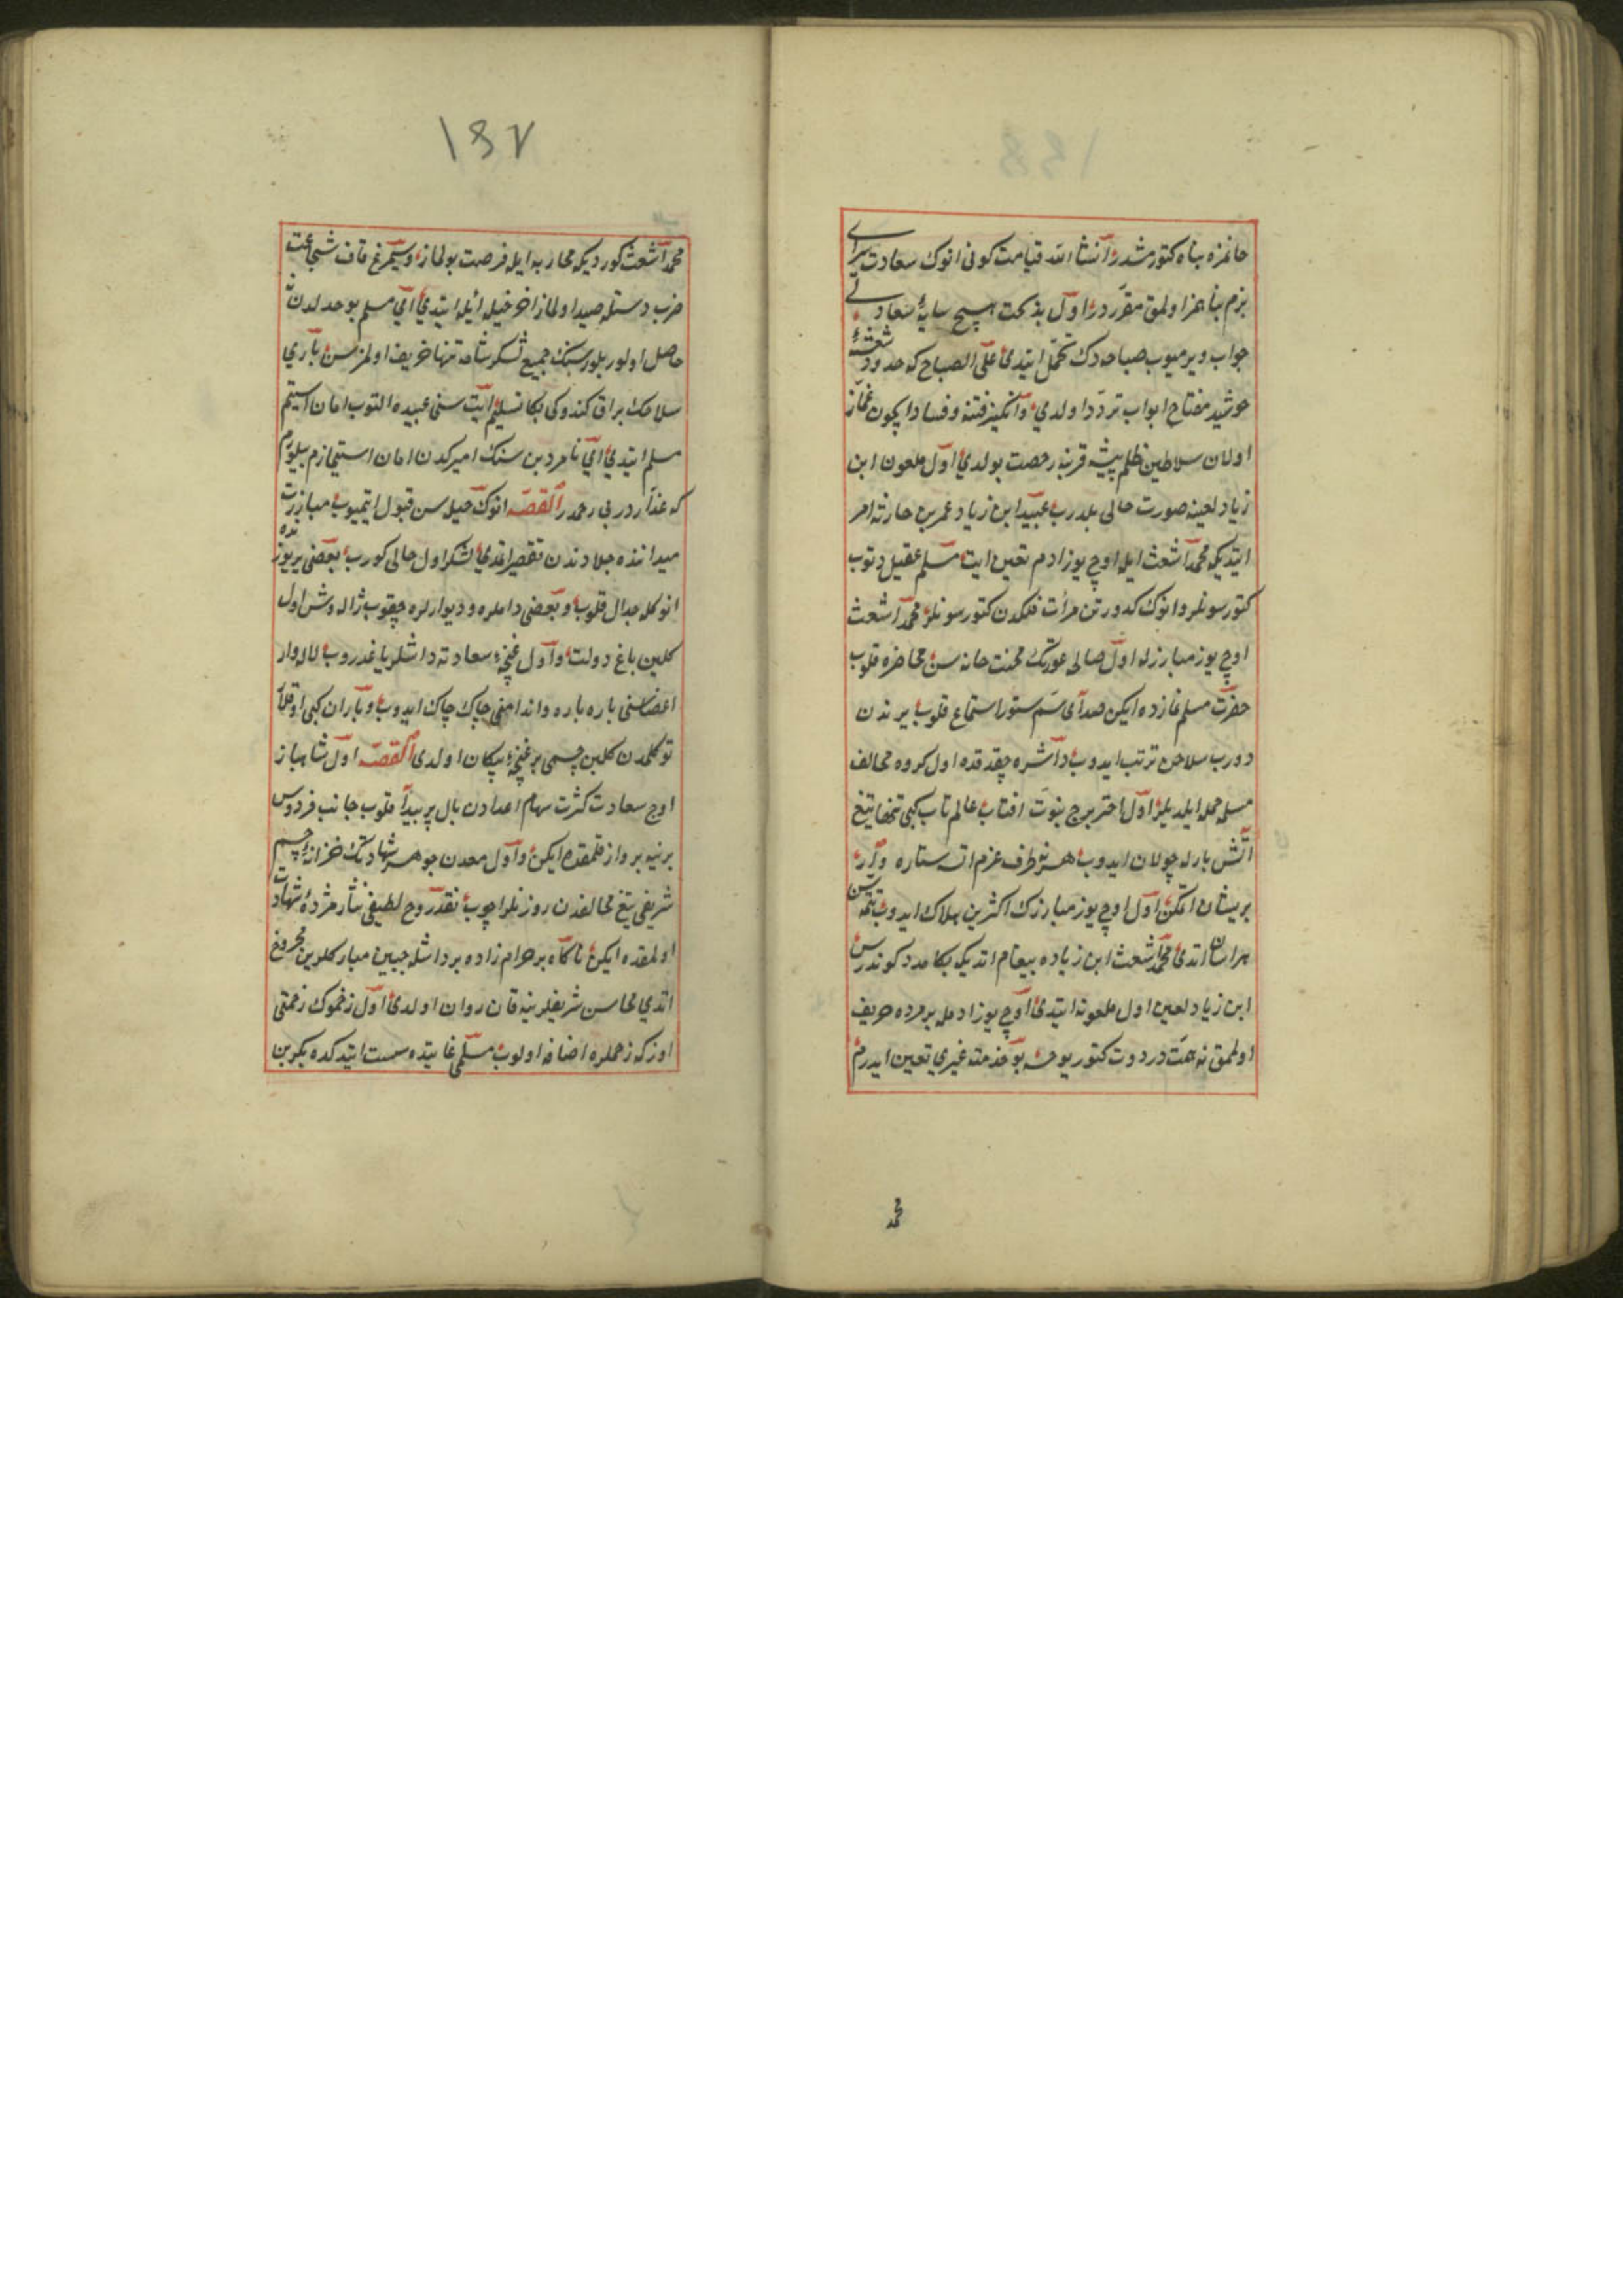 خانمزه پناه كتورمشدر انشا الله قیامت كونی انوك سعادت سرای
بزم پناهمز اولمق مقرردر اول بدبخت هیچ سایۀ سعاد
جواب ویرمیوب صباحه دك تحمل ایتدی علی الصباح كه حدود
خورشید مفتاح ابواب تردد اولدی وانكیز فتنه وفساد ایچون غماز
اولان سلاطین ظلم پیشه قربنه رخصت بولدی اول ملعون ابن
زیاد لعینه صورت حالی بلدرب عبید ابن زیاد عمر بن حارثه امر
ایتدیكه محمد اشعث ایله اوچ یوز ادم تعین ایت مسلم عقیل دتوب
كتورسونلر وانوك كدورتن مرأت فلكدن كتورسونلر محمد اشعث
اوچ یوز مبارزله اول صالی عورتك محنت خانه سن محاضره قلوب
حضرت مسلم نمازده ایكن صدای سم ستور استماع قلوب یرندن
دورب سلاحن ترتب ایدوب داشره چقدقده اول كروه مخالف
مسلمه حمله ایلدیلر اول اختر برج نبوت افتاب عالم تاب كبی تنها تیغ
اتش بارله جولان ایدوب هر نه طرف عزم اتسه ستاره وار
بریشان اتكن اول اوچ یوز مبارزك اكثرین هلاك ایدوب تتمه سن
هراسان اتدی محمد اشعث ابن زیاده پیغام اتدیكه بكا مدد كوندرسن
ابن زیاد لعین اول ملعونه ایتدی اوچ یوز ادمله بر مرده حریف
اولمق نه همت در دوت كتور یوخسه بو خذمته غیری تعین ایدرم
محمد
۱۳۷
محمد اشعث كوردیكه محاربه ایله فرصت بولماز وسیمرغ قاف شجاعت
ضرب دستله صید اولماز اخر خیله ائیله ایتدی ای مسلم بو جدلدن نه
حاصل اولور بلورسنك جمیع لشكر شامه تنها خریف اولمزسن باری
سلاحك براق كندوكی بكا تسلیم ایت سنی عبیده التوب امان استیم
مسلم ایتدی ای نامرد بن سنك امیركدن امان استمازم بیلورم
كه غدار در بی رحمدر القصه انوك حیله سن قبول ایتمیوب مبازرت
میداننده جلادتدن تقصیر اتمدی لشكر اول حالی كورب بعضی یر یوزنده
انوكله جدال قلوب وبعضی داملره ودیوارلره چقوب ژاله وش اول
كلبن باغ دولت واول غنچۀ سعادته داشلر یاغدروب لاله وار
اعضاسنی پاره پاره واندامنی چاك چاك ایدوب وباران كبی اوقلا
توكلمدن كلبن جسمی بر غنچۀ پیكان اولدی القصه اول شاهباز
اوج سعادت كثرت سهام اعدادن بال پر پیدا قلوب جانب فردوس
برنیه پرواز قلمقده ایكن واول معدن جوهر شهادتك خزانۀ جسم
شریفی تیغ مخالفدن روزنلر اچوب نقد روح لطیفی نثار مژدۀ شهادت
اولمقده ایكن ناكاه بر حرام زاده بر داشله جبین مباركلرین مجروح
اتدی محاسن شریفلرینه قان روان اولدی اول زخموك زحمتی
اوزكه زخملره اضافه اولوب مسلمی غایتده سست ایتدكده بكر بن